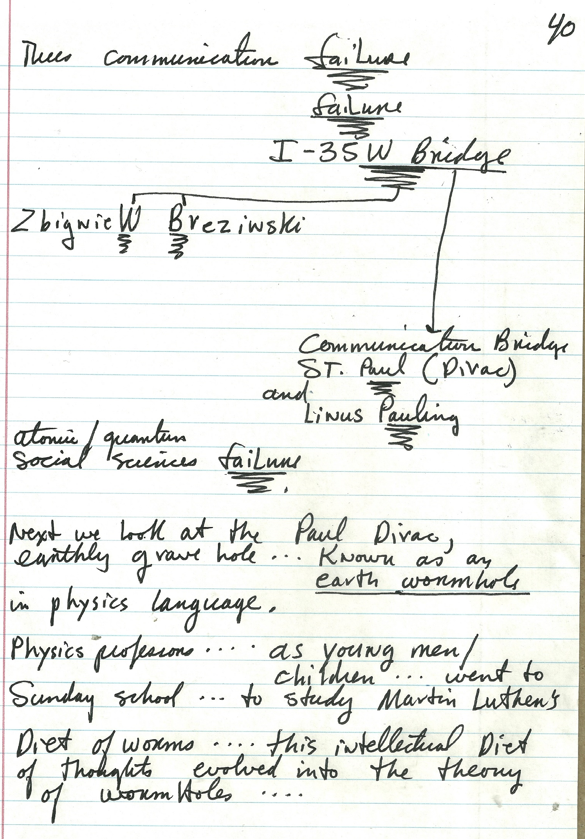 40
Thees communication failure
failure
I-35W Bridge
ZbignieW Breziwski
Communication Bridge
ST. Paul (Divac)
and
Linus Pauling
atomic/quantum
social sciences failure.
Next we look at the Paul Divac,
earthly grave hole ... Known as an
earth wormhole
in physics language.
Physics professors .... as young men/
children ... went to
Sunday school ... to study Martin Luther's
Diet of worms .... this intellectual Diet
of thoughts evolved into the theory
of wormHoles ....